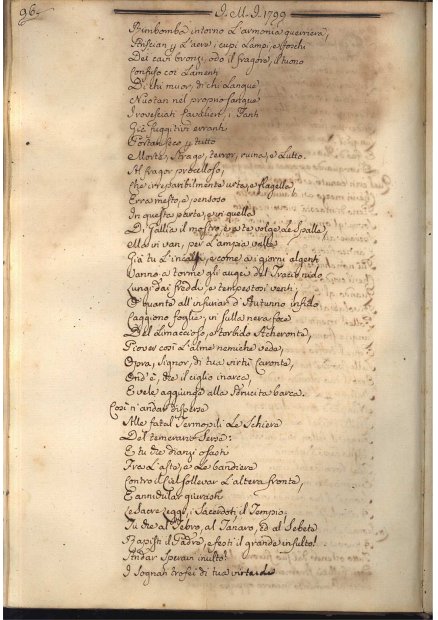 96.
I. M. I. 1799
Rimbomba intorno L'armonia guerriera,
Striscian p L'aere i cupi Lampi, e foschi
Dei cavi bronzi, odo il fragore, il tuono
Confuso coi Lamenti
Di chi muor, di chi Langue,
Nuotan nel proprio sangue
Rovesciati Cavalieri, i Fanti
Già fuggitivi erranti
Portan seco p tutto
Morte, Strage, terror, ruina, e Lutto.
Al fragor procelloso,
Che irreparabilmente urta, e flagella
Erra mesto, e pensoso
In questa parte, e in quella
Di Gallia il mostro, e a te volge Le Spalle,
Ma vi van, per L'ampia valle
Già tu L'incalzi, e come a i giorni algenti
Vanno a torme gli augei del Tracio nido
Lungi dai freddi, e tempestosi venti,
O quante all'infuriar d'Autunno infido
Caggiono foglie, in sulla nera foce
Del Limaccioso, e torbido Acheronte,
Piover così L'alme nemiche vede,
Opra, Signor, di tua virtù Caronte,
Ond'è, che il ciglio inarca,
E vele aggiunge alla sdrucita barca.
Così n'andar disperse
Alle fatal Termopili Le Schiere
Del temerario Serse:
E tu che dianzi osasti
Fra L'aste, e Le bandiere
Contro il Ciel sollevar L'altera fronte,
E annullar giurasti
Le Sacre Leggi, i Sacerdoti, il Tempio,
Tu che al Tebro, al Tanaro, ed al Sebeto
Rapisti il Padre, e festi il grande insulto!
Andar speravi inulto!
I sognati trofei di tua virtude